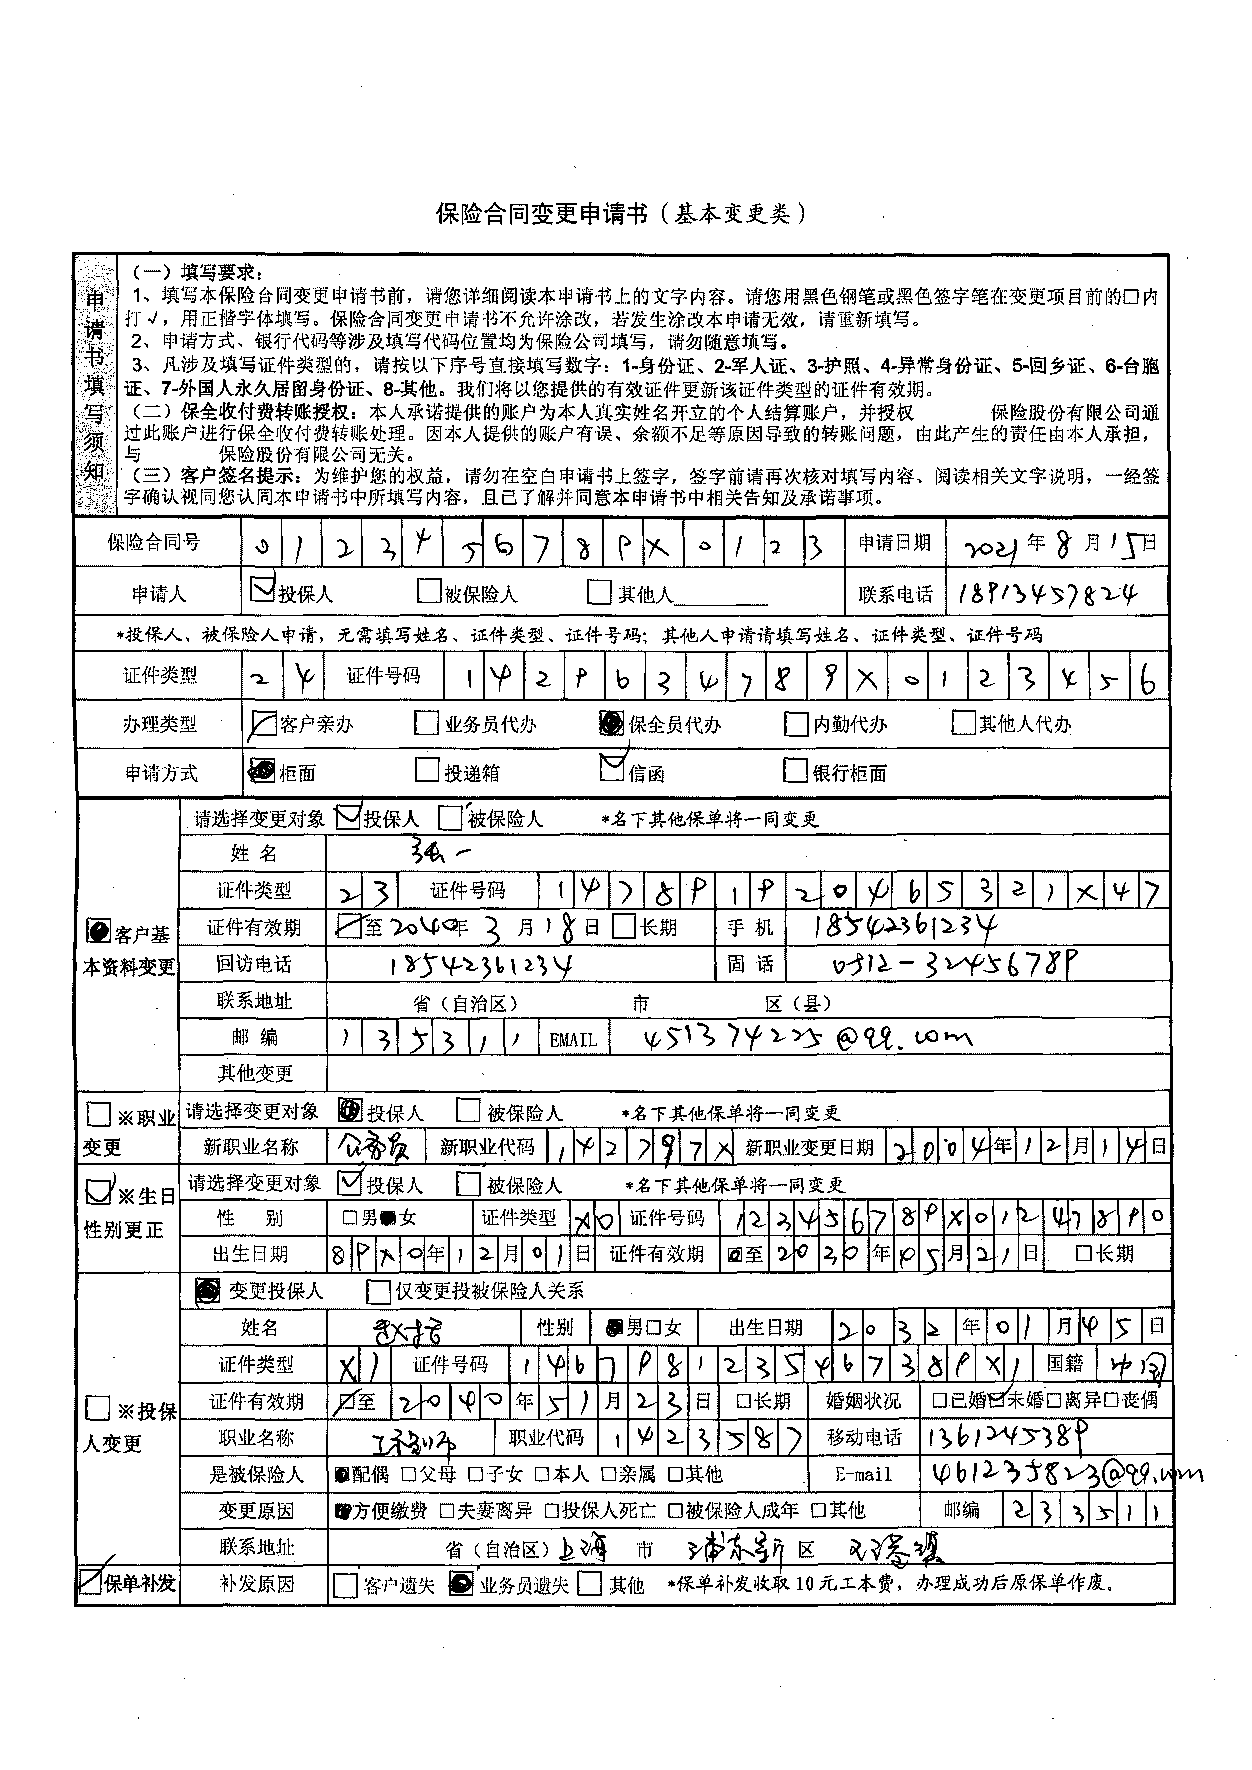 保险合同变更申请书（基本变更类）
申请书填写须知
（一）填写要求：
1、填写本保险合同变更申请书前，请您详细阅读本申请书上的文字内容。请您用黑色钢笔或黑色签字笔在变更项目前的□内
打√，用正楷字体填写。保险合同变更申请书不允许涂改，若发生涂改本申请无效，请重新填写。
2、申请方式、银行代码等涉及填写代码位置均为保险公司填写，请勿随意填写。
3、凡涉及填写证件类型的，请按以下序号直接填写数字：1-身份证、2-军人证、3-护照、4-异常身份证、5-回乡证、6-台胞
证、7-外国人永久居留身份证、8-其他。我们将以您提供的有效证件更新该证件类型的证件有效期。
（二）保全收付费转账授权：本人承诺提供的账户为本人真实姓名开立的个人结算账户，并授权 保险股份有限公司通
过此账户进行保全收付费转账处理。因本人提供的账户有误、余额不足等原因导致的转账问题，由此产生的责任由本人承担，
与 保险股份有限公司无关。
（三）客户签名提示：为维护您的权益，请勿在空白申请书上签字，签字前请再次核对填写内容、阅读相关文字说明，一经签
字确认视同您认同本申请书中所填写内容，且已了解并同意本申请书中相关告知及承诺事项。
保险合同号 0123456789X0123 申请日期 2021年8月15日
申请人 ☑投保人 □被保险人 □其他人________ 联系电话 18913457824
*投保人、被保险人申请，无需填写姓名、证件类型、证件号码；其他人申请请填写姓名、证件类型、证件号码
证件类型 24 证件号码 1429634789X0123456
办理类型 ☑客户亲办 □业务员代办 ■保全员代办 □内勤代办 □其他人代办
申请方式 ■柜面 □投递箱 ☑信函 □银行柜面
■客户基本资料变更
请选择变更对象 ☑投保人 □被保险人 *名下其他保单将一同变更
姓 名 张一
证件类型 23 证件号码 147891920465321X47
证件有效期 ☑至2040年3月18日 □长期 手 机 18542361234
回访电话 18542361234 固 话 0312-32456789
联系地址 省（自治区） 市 区（县）
邮 编 135311 EMAIL 451374225@qq.com
其他变更
□※职业变更
请选择变更对象 ■投保人 □被保险人 *名下其他保单将一同变更
新职业名称 公务员 新职业代码 142797X 新职业变更日期 2004年12月14日
☑※生日性别更正
请选择变更对象 ☑投保人 □被保险人 *名下其他保单将一同变更
性 别 □男■女 证件类型 X0 证件号码 123456789X01247890
出生日期 89X0年12月01日 证件有效期 ☑至2030年05月21日 □长期
□※投保人变更
■变更投保人 □仅变更投被保险人关系
姓名 赵括 性别 ■男□女 出生日期 2032年01月45日
证件类型 X1 证件号码 1467981235467389X1 国籍 中国
证件有效期 ☑至2040年51月23日 □长期 婚姻状况 □已婚☑未婚□离异□丧偶
职业名称 工程师 职业代码 1423587 移动电话 1361245389
是被保险人 ■配偶 □父母 □子女 □本人 □亲属 □其他 E-mail 461235823@qq.com
变更原因 ■方便缴费 □夫妻离异 □投保人死亡 □被保险人成年 □其他 邮编 233511
联系地址 省（自治区）上海 市 浦东新 区
☑保单补发 补发原因 □客户遗失 ■业务员遗失 □其他 *保单补发收取10元工本费，办理成功后原保单作废。